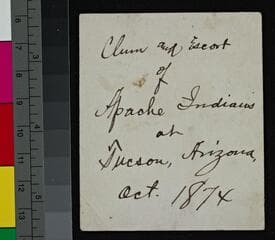 Clum and Escort
of
Apache Indians
at
Tucson, Arizona,
Oct. 1874